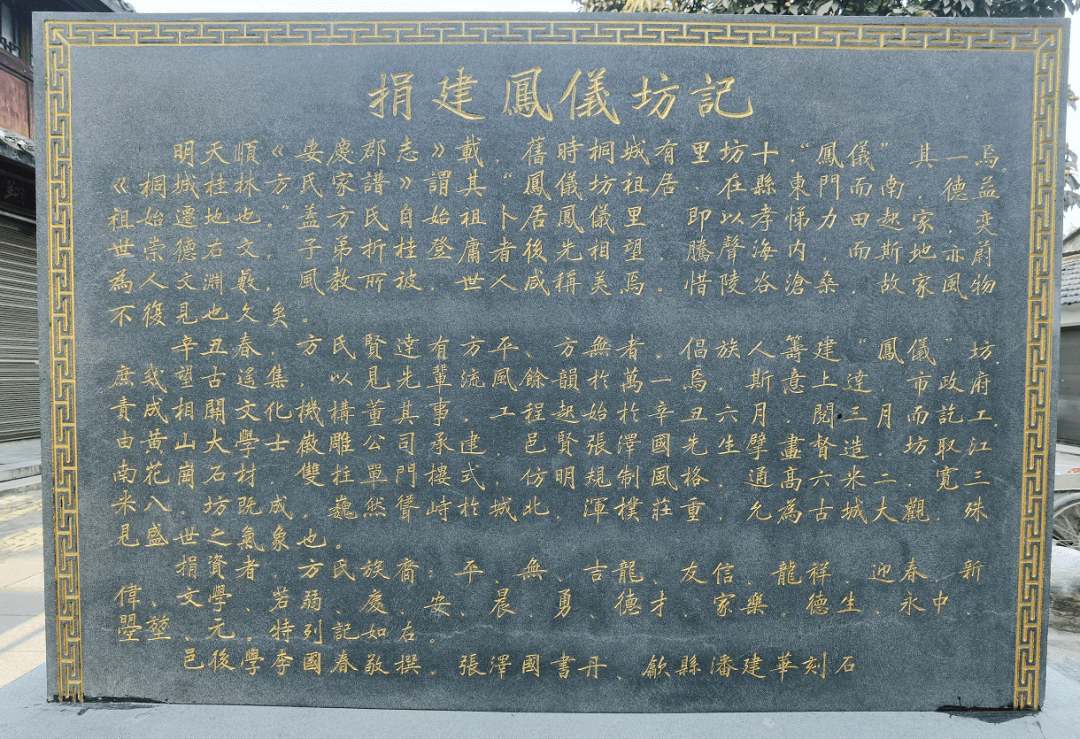 捐建鳳儀坊記
明天順《安慶郡志》載，舊時桐城有里坊十，“鳳儀”其一焉。
《桐城桂林方氏家譜》謂其“鳳儀坊祖居，在縣東門而南，德益
祖始遷地也。”蓋方氏自始祖卜居鳳儀里，即以孝悌力田起家，奕
世崇德右文，子弟折桂登庸者後先相望，騰聲海内，而斯地亦蔚
為人文淵藪，風教所被，世人咸稱美焉。惜陵谷滄桑，故家風物
不復見也久矣。
辛丑春，方氏賢達有方平、方無者，倡族人籌建“鳳儀”坊，
庶幾望古遥集，以見先輩流風餘韻於萬一焉。斯意上達，市政府
責成相關文化機構董其事，工程起始於辛丑六月，閲三月而訖工。
由黄山大學士徽雕公司承建，邑賢張澤國先生擘畫督造，坊取江
南花崗石材，雙柱單門樓式，仿明規制風格，通高六米二，寬三
米八。坊既成，巍然聳峙於城北，渾樸莊重，允為古城大觀，殊
見盛世之氣象也。
捐資者，方氏族裔：平、無、吉龍、友信、龍祥、迎春、新
偉、文學、若弱、慶、安、晨、勇、德才、家樂、德生、永中、
曌、堃、元。特列記如右。
邑後學李國春敬撰，張澤國書丹、歙縣潘建華刻石